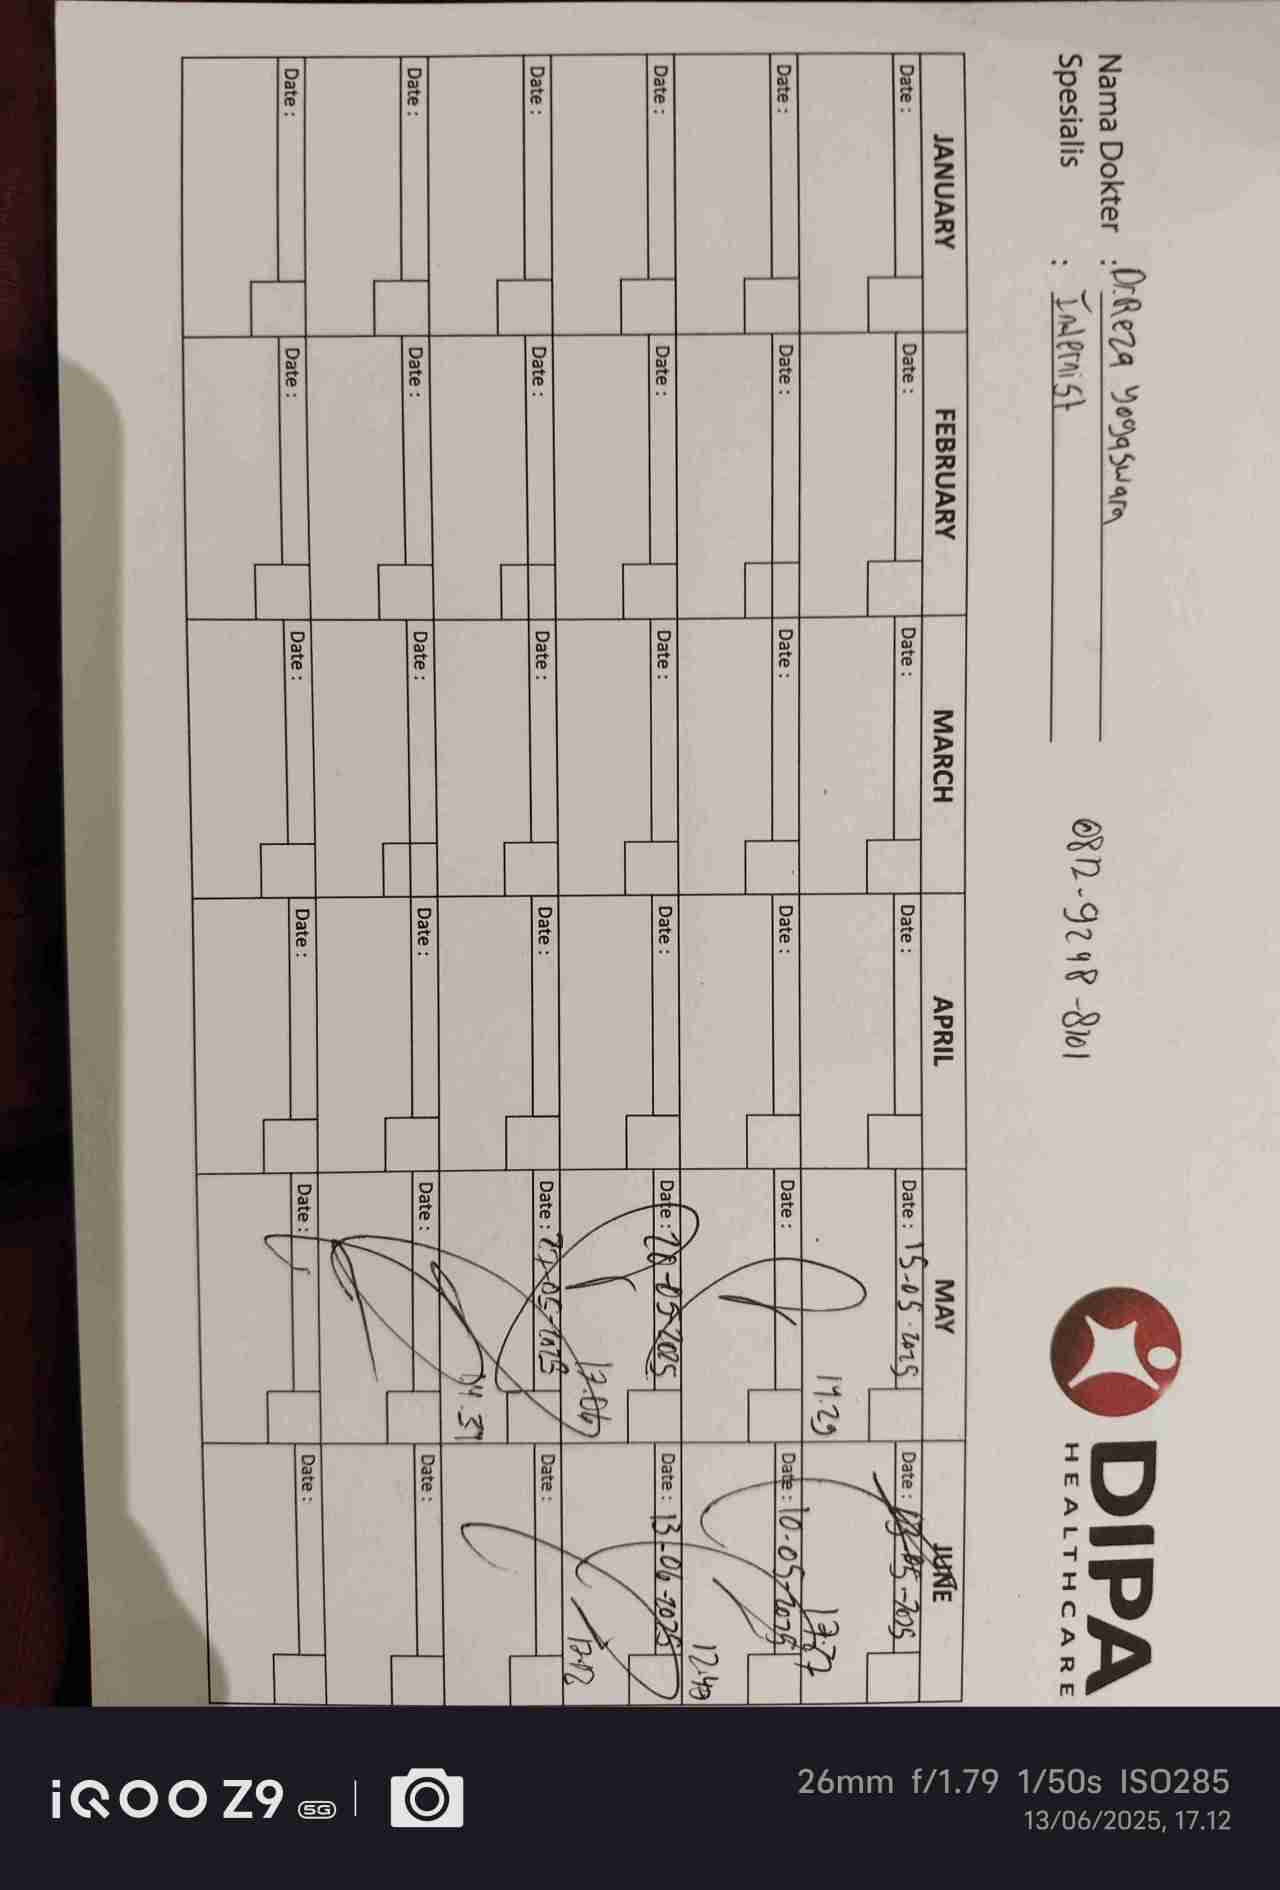 DIPA
HEALTHCARE
Nama Dokter : Dr. Reza Yogaswara
Spesialis : Internist
0812-9248-8101
JANUARY FEBRUARY MARCH APRIL MAY JUNE
Date : Date : Date : Date : Date : 15-05-2025 Date : 03-05-2025
14.29 17.27
Date : Date : Date : Date : Date : Date : 10-05-2025
12.40
Date : Date : Date : Date : Date : 20-05-2025 Date : 13-06-2025
17.06 17.12
Date : Date : Date : Date : Date : 27-05-2025 Date :
14.37
Date : Date : Date : Date : Date : Date :
Date : Date : Date : Date : Date : Date :
iQOO Z9 5G
26mm f/1.79 1/50s ISO285
13/06/2025, 17.12